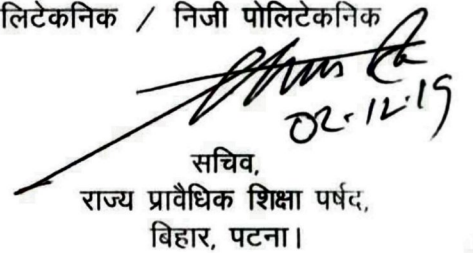 लिटेकनिक / निजी पोलिटेकनिक
02-12-19
सचिव,
राज्य प्रावैधिक शिक्षा पर्षद,
बिहार, पटना।